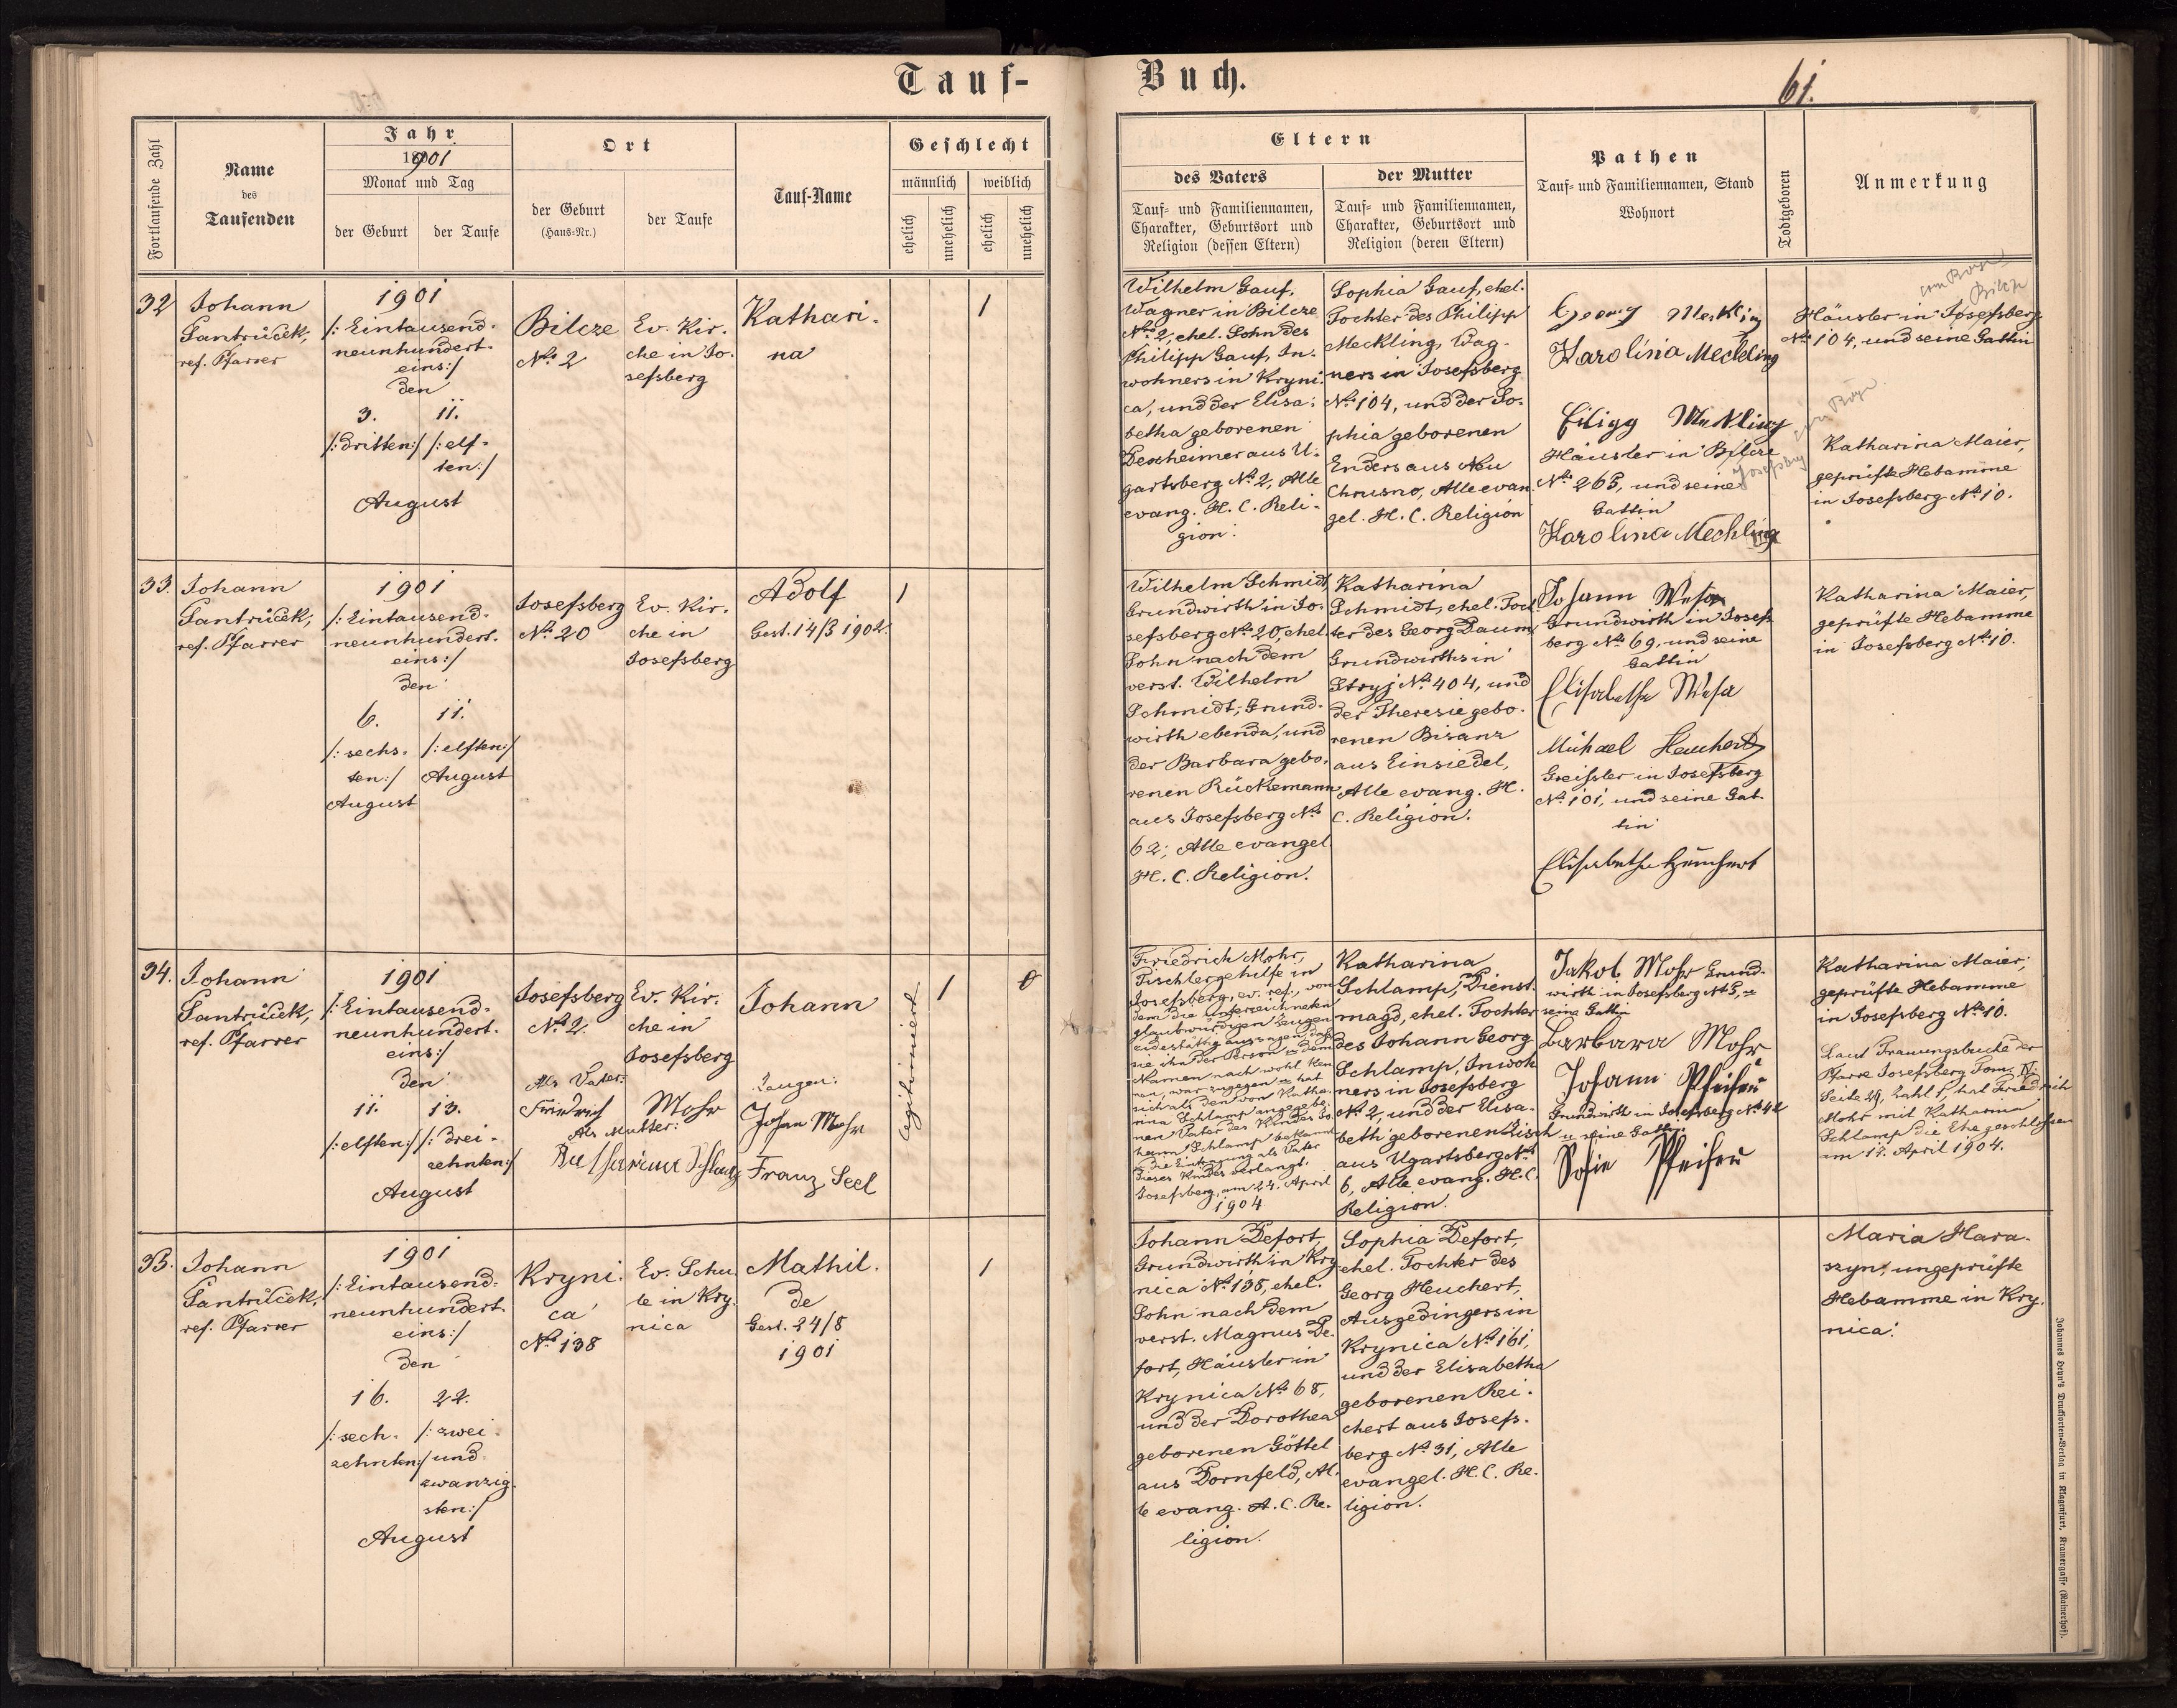 Tauf-
Buch.
61.
Fortlaufende Zahl
Name
des
Taufenden
Jahr
1901
Monat und Tag
der Geburt
der Taufe
Ort
der Geburt
(Haus-Nr.)
der Taufe
Tauf-Name
Geschlecht
männlich
weiblich
ehelich
unehelich
ehelich
unehelich
Eltern
des Vaters
Tauf- und Familiennamen,
Charakter, Geburtsort und
Religion (dessen Eltern)
der Mutter
Tauf- und Familiennamen,
Charakter, Geburtsort und
Religion (deren Eltern)
Pathen
Tauf- und Familiennamen, Stand
Wohnort
Todtgeboren
Anmerkung
32
Johann
Jantrůček,
ref. Pfarrer
1901
/: Eintausend-
neunhundert-
eins :/
den
3.
/: dritten :/
11.
/: elf-
ten :/
August
Bilcze
No. 2
Ev. Kir-
che in Jo-
sefsberg
Kathari-
na
1
Wilhelm Gauf,
Wagner in Bilcze
No. 2, ehel. Sohn des
Philipp Gauf, In-
wohners in Kryni-
ca, und der Elisa-
betha geborenen
Dexheimer aus U-
gartsberg No. 2, Alle
evang. H. C. Reli-
gion.
Sophia Gauf, ehel.
Tochter des Philipp
Meckling, Wag-
ners in Josefsberg
No. 104, und der So-
phia geborenen
Enders aus Neu
Chrusno, Alle evan-
gel. H. C. Religion
Georg Mekling
Karolina Meckling
Filipp Mekling
Häusler in Bilcze
No. 265, und seine
Gattin
Karolina Mechling
Josefsberg
vom Bogen
Bilcze
Häusler in Josefsberg
No. 104, und seine Gattin
Katharina Maier,
geprüfte Hebamme
in Josefsberg No. 10.
33.
Johann
Jantrůček,
ref. Pfarrer
1901
/: Eintausend-
neunhundert-
eins :/
den
6.
/: sechs-
ten :/
August
11.
/: elften :/
August
Josefsberg
No. 20
Ev. Kir-
che in
Josefsberg
Adolf
Gest. 14/3 1902.
1
Wilhelm Schmidt,
Grundwirth in Jo-
sefsberg No. 20, ehel.
Sohn nach dem
verst. Wilhelm
Schmidt, Grund-
wirth ebenda, und
der Barbara gebo-
renen Rückemann
aus Josefsberg No.
62; Alle evangel.
H. C. Religion.
Katharina
Schmidt, ehel. Toch-
ter des Georg Daum,
Grundwirths in
Stryj No. 404, und
der Theresie gebo-
renen Bisanz
aus Einsiedel,
Alle evang. H.
C. Religion.
Johann Wesa
Grundwirth in Josefs-
berg No. 69, und seine
Gattin
Elisabetha Wesa
Michael Heuchert
Greissler in Josefsberg
No. 101, und seine Gat-
tin
Elisabetha Heuchert
Katharina Maier,
geprüfte Hebamme
in Josefsberg No. 10.
34.
Johann
Jantrůček,
ref. Pfarrer
1901
/: Eintausend-
neunhundert-
eins :/
den
11.
/: elften :/
13.
/: drei-
zehnten :/
August
Josefsberg
No. 2.
Ev. Kir-
che in
Josefsberg
Als Vater:
Friedrich Mohr
Als Mutter:
Katharina Schlamp
Johann
Zeugen:
Johan Mohr
Franz Seel
legitimiert
1
0
Friedrich Mohr,
Tischlergehilfe in
Josefsberg, ev. ref., von
dem die unterzeichneten
glaubwürdigen Zeugen
eidestättig aussagen, daß
sie ihn der Person u dem
Namen nach wohl ken-
nen, war zugegen u hat
sich als den von Katha-
rina Schlamp angegebe-
nen Vater des Kindes Jo-
hann Schlamp bekannt
u die Eintragung als Vater
dieses Kindes verlangt.
Josefsberg, am 24. April
1904
Katharina
Schlamp, Dienst-
magd, ehel. Tochter
des Johann Georg
Schlamp, Inwoh-
ners in Josefsberg
No. 2, und der Elisa-
beth geborenen Zisch
aus Ugartsberg No.
6, Alle evang. H. C.
Religion.
Jakob Mohr Grund-
wirth in Josefsberg No 5, u
seine Gattin
Barbara Mohr
Johann Pfeifer
Grundwirth in Josefsberg No 42
u seine Gattin
Sofie Pfeifer
Katharina Maier,
geprüfte Hebamme
in Josefsberg No. 10.
Laut Trauungsbuche der
Pfarre Josefsberg Tom. IV.
Seite 29, Zahl 5, hat Friedrich
Mohr mit Katharina
Schlamp die Ehe geschlossen
am 17. April 1904.
35.
Johann
Jantrůček,
ref. Pfarrer
1901
/: Eintausend-
neunhundert-
eins :/
den
16.
/: sech-
zehnten :/
22.
/: zwei-
und
zwanzig-
sten :/
August
Kryni-
ca
No. 138
Ev. Schu-
le in Kry-
nica
Mathil-
de
Gest. 24/8
1901
1
Johann Defort,
Grundwirth in Kry-
nica No. 138, ehel.
Sohn nach dem
verst. Magnus De-
fort, Häusler in
Krynica No. 68,
und der Dorothea
geborenen Göttel
aus Dornfeld, Al-
le evang. A. C. Re-
ligion.
Sophia Defort,
ehel. Tochter des
Georg Heuchert,
Ausgedingers in
Krynica No. 161,
und der Elisabetha
geborenen Rei-
chert aus Josefs-
berg No. 31, Alle
evangel. H. C. Re-
ligion.
Maria Hara-
szyn, ungeprüfte
Hebamme in Kry-
nica.
Johannes Heyn's Drucksorten-Verlag in Klagenfurt, Kramergasse (Rainerhof).